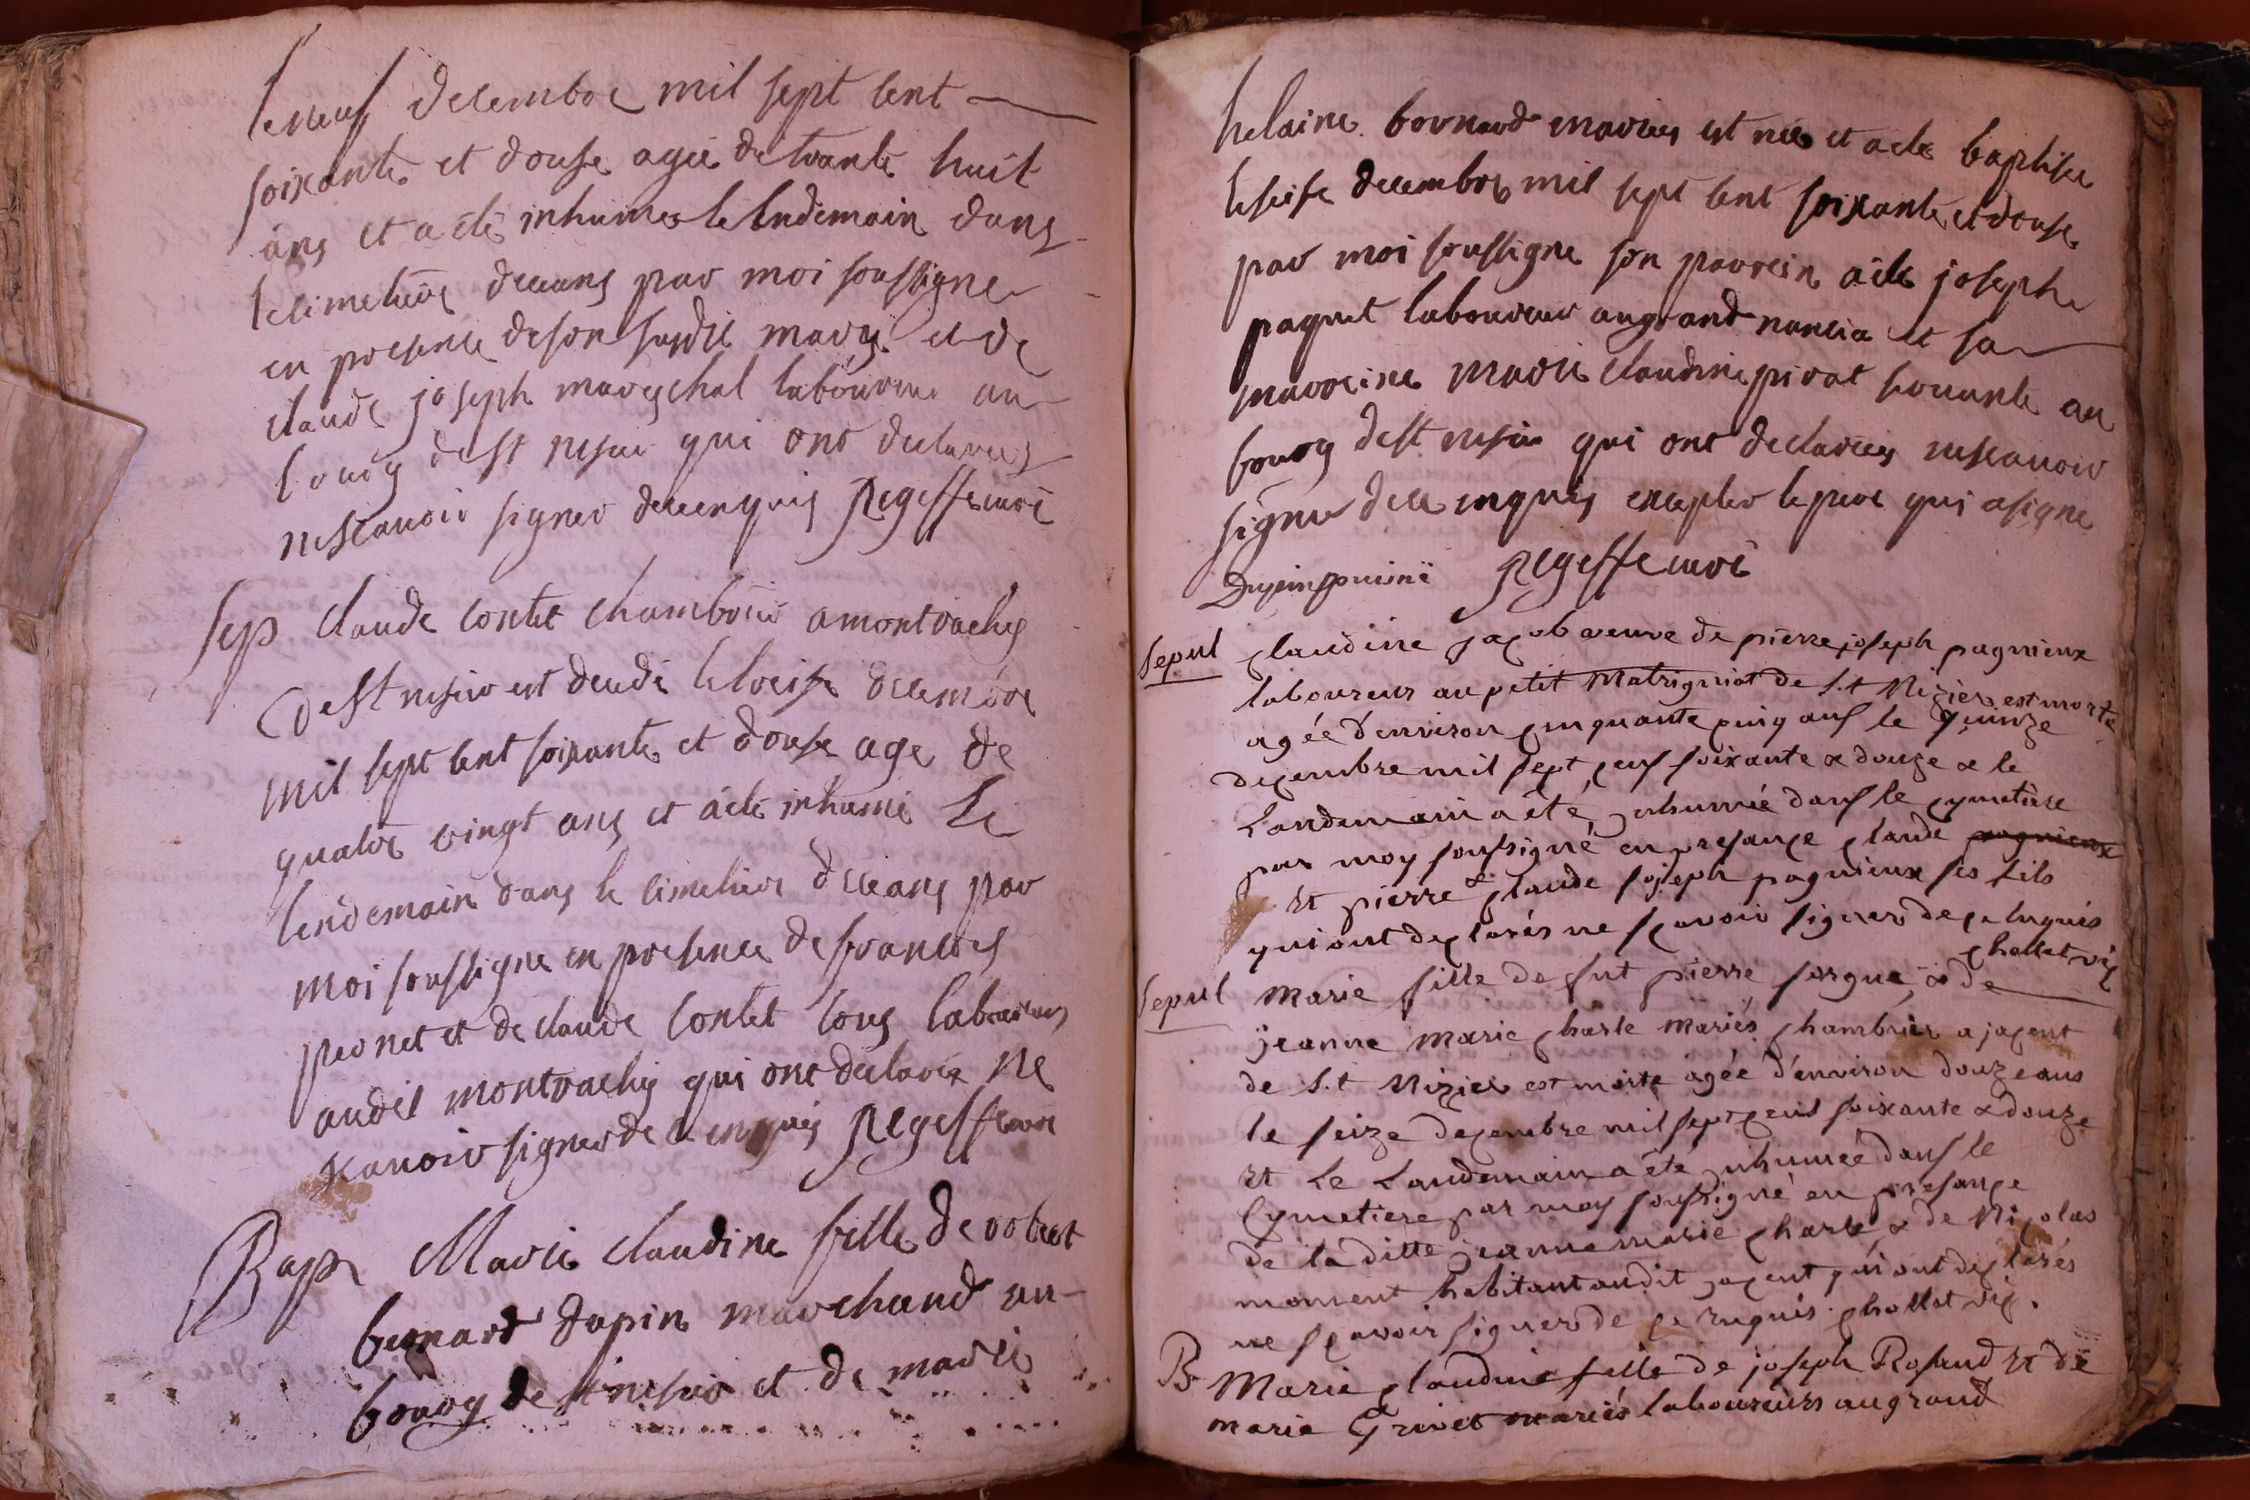 le neuf decembre mil sept cent
soixante et douse agée de trante huit
ans et a eté inhumée le lendemain dans
le cimetiere deceans par moi soussigne
en presence de son susdit mary et de
claude joseph mareschal laboureur au
bourg de st nisier qui ont declarez
ne scavoir signer de ce enquis
sep claude contet chambrier a montrachy
de st nisier est decedé le treise decembre
mil sept cent soixante et douse age de
quatre vingt ans et a eté inhumé le
lendemain dans le cimetiere deceans par
moi soussigne en presence de francois
peonet et de claude contet tous laboureurs
audit montrachy qui ont declaré ne
scavoir signer de ce enquis
Bap Marie claudine fille de robert
bernard dupin marchand au
bourg de st nisier et de marie
helaine bernard mariés est née et a ete baptisee
le seise decembre mil sept cent soixante et douse
par moi soussigne son parrein a ete joseph
paquet laboureur au grand nancia et sa
marreine marie claudine pirat servante au
bourg de st nisier qui ont declarées ne scavoir
signer de ce enquis excepter le pere qui a signe
Sepul claudine jacob veuve de pierre joseph pagnieux
laboureur au petit Matrigniat de S.t Nizier est morte
agée d'environ cinquante cinq ans le quinze
decembre mil sept cens soixante & douze & le
Landemain a été inhumée dans le cymetiere
par moy soussigné en presance claude pagnieux
et pierre & claude joseph pagnieux ses fils
qui ont declarés ne scavoir signer de ce enquis
chollet vic
Sepul Marie fille de fut pierre forgue & de
jeanne marie charle mariés chambrier a jacent
de S.t Nizier est morte agée d'environ douze ans
le seize decembre mil sept cent soixante & douze
et Le Landemain a été inhumée dans le
Cymetiere par moy soussigné en presance
de la ditte jeanne marie charle & de Nicolas
moment habitant audit jacent qui ont declarés
ne scavoir signer de ce enquis chollet vic.
B Marie claudine fille de joseph Rosand et de
marie Grivet mariés laboureurs au grand